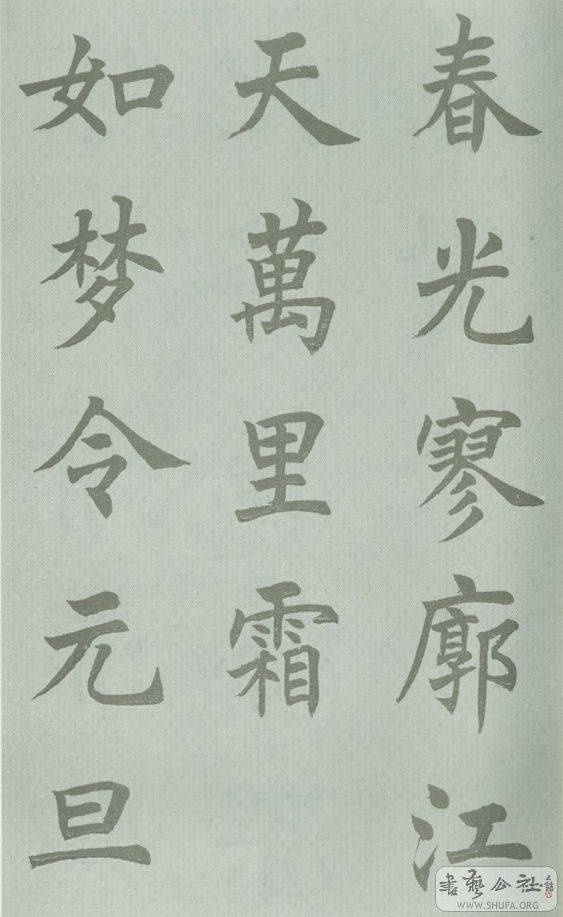 春光寥廓江
天萬里霜
如梦令元旦
書藝公社
WWW.SHUFA.ORG